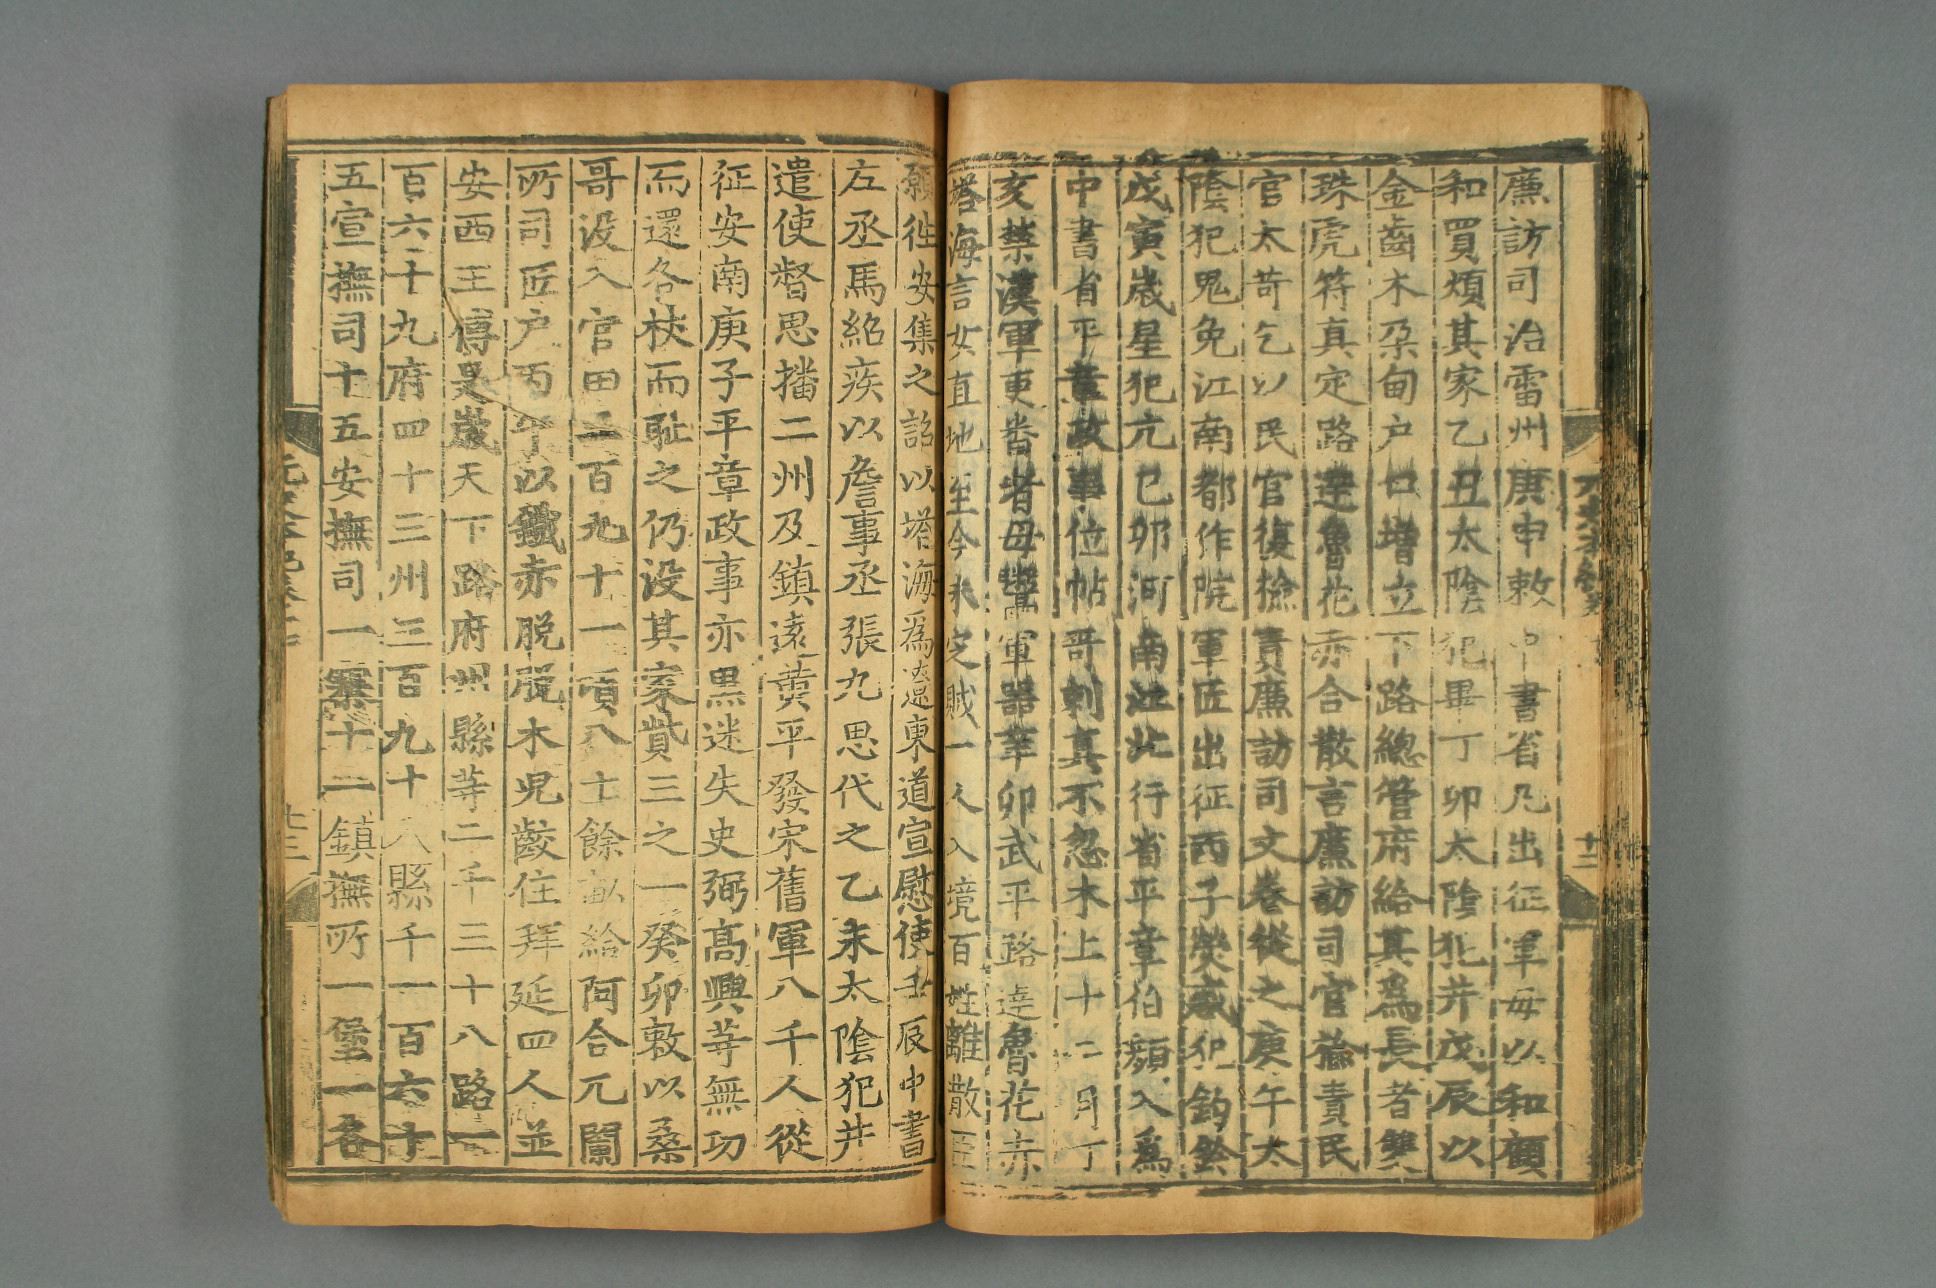 廉訪司治雷州庚申敕中書省凡出征軍毋以和顧
和買煩其家乙丑太陰犯畢丁卯太陰犯井戊辰以
金齒木朶甸戶口增立下路總管府給其爲長者雙
珠虎符真定路達魯花赤合散言廉訪司官檢責民
官太苛乞以民官復檢責廉訪司文卷從之庚午太
陰犯鬼免江南都作院軍匠出征丙子熒惑犯鈎鈐
戊寅歲星犯亢己卯河南江北行省平章伯顏入爲
中書省平章政事位帖哥剌真不忽木上十二月丁
亥禁漢軍更番者毋鬻軍器辛卯武平路達魯花赤
塔海言女直地至今未定賊一人入境百姓離散臣
願徃安集之詔以塔海爲遼東道宣慰使壬辰中書
左丞馬紹疾以詹事丞張九思代之乙未太陰犯井
遣使督思播二州及鎮遠黄平發宋舊軍八千人從
征安南庚子平章政事亦黑迷失史弼高興等無功
而還各杖而耻之仍没其家貲三之一癸卯敕以桑
哥没入官田三百九十一頃八十餘畝給阿合兀闌
所司匠户丙午以鐵赤脱脱木兒齩住拜延四人並
安西王傅是歲天下路府州縣等二千三十八路一
百六十九府四十三州三百九十八縣千一百六十
五宣撫司十五安撫司一寨十一鎮撫所一堡一各
元史本紀卷十七
十二
十三